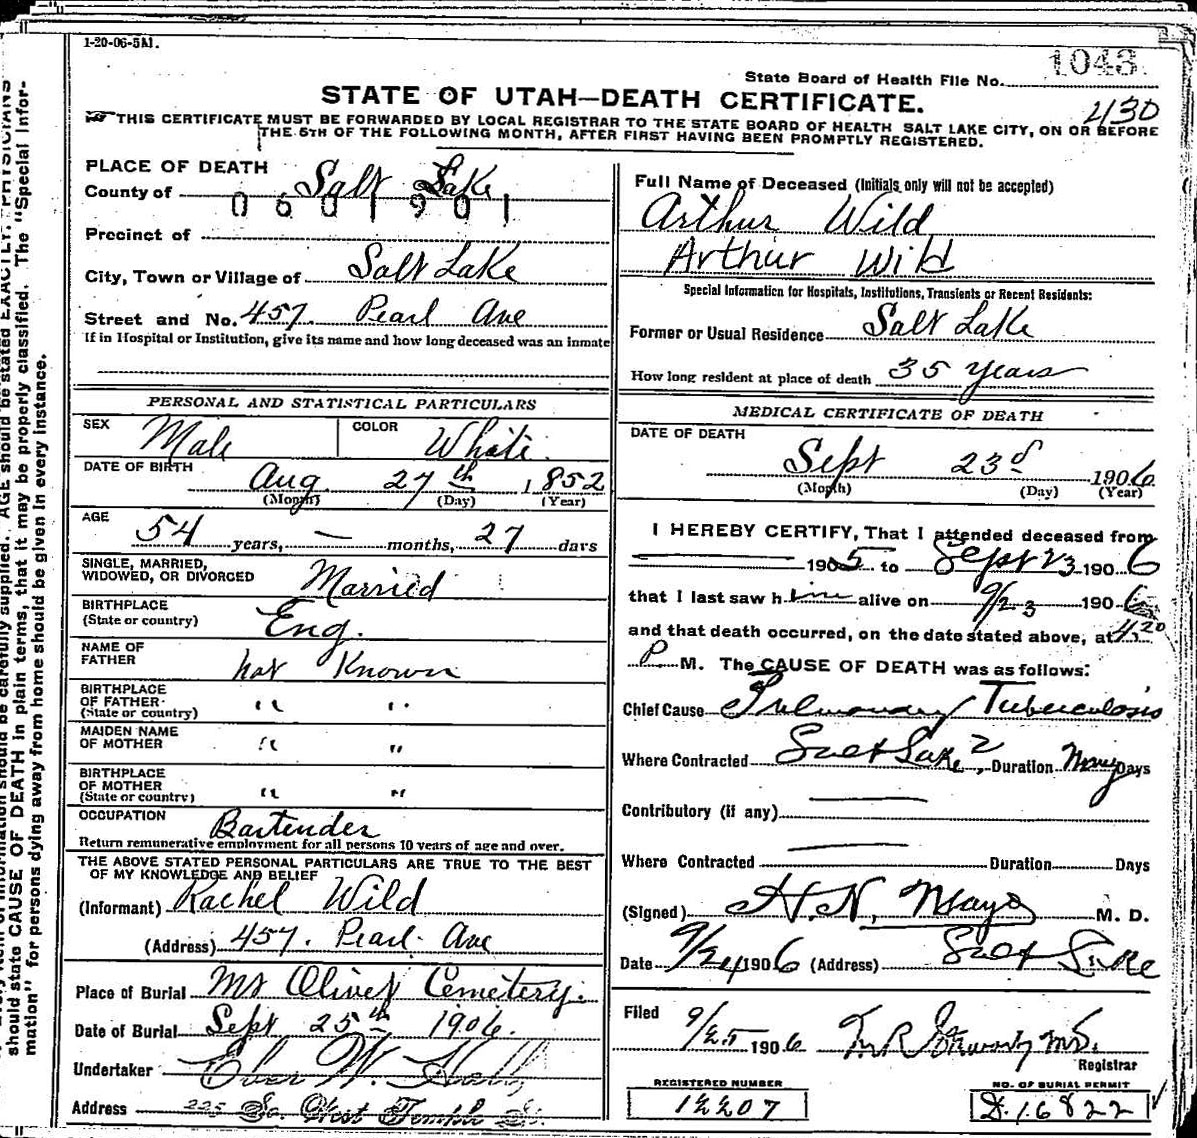 1-20-06-5M.
State Board of Health File No. 1043
STATE OF UTAH—DEATH CERTIFICATE.
430
THIS CERTIFICATE MUST BE FORWARDED BY LOCAL REGISTRAR TO THE STATE BOARD OF HEALTH SALT LAKE CITY, ON OR BEFORE
THE 5TH OF THE FOLLOWING MONTH, AFTER FIRST HAVING BEEN PROMPTLY REGISTERED.
PLACE OF DEATH
County of Salt Lake
0601901
Precinct of
City, Town or Village of Salt Lake
Street and No. 457. Pearl Ave
If in Hospital or Institution, give its name and how long deceased was an inmate
PERSONAL AND STATISTICAL PARTICULARS
SEX Male COLOR White
DATE OF BIRTH Aug 27th 1852
(Month) (Day) (Year)
AGE
54 years, — months, 27 days
SINGLE, MARRIED,
WIDOWED, OR DIVORCED Married
BIRTHPLACE
(State or country) Eng.
NAME OF
FATHER not Known
BIRTHPLACE
OF FATHER
(State or country) " "
MAIDEN NAME
OF MOTHER " "
BIRTHPLACE
OF MOTHER
(State or country) " "
OCCUPATION Bartender
Return remunerative employment for all persons 10 years of age and over.
THE ABOVE STATED PERSONAL PARTICULARS ARE TRUE TO THE BEST
OF MY KNOWLEDGE AND BELIEF
(Informant) Rachel Wild
(Address) 457. Pearl Ave
Place of Burial Mt Olivet Cemetery.
Date of Burial Sept 25th 1906.
Undertaker Eber W. Hall
Address 225 So. West Temple St.
Full Name of Deceased (Initials only will not be accepted)
Arthur Wild
Arthur Wild
Special Information for Hospitals, Institutions, Transients or Recent Residents:
Former or Usual Residence Salt Lake
How long resident at place of death 35 years
MEDICAL CERTIFICATE OF DEATH
DATE OF DEATH
Sept 23d 1906
(Month) (Day) (Year)
I HEREBY CERTIFY, That I attended deceased from
1905 to Sept 23 1906
that I last saw him alive on 9/23 1906
and that death occurred, on the date stated above, at 4:20
P M. The CAUSE OF DEATH was as follows:
Chief Cause Pulmonary Tuberculosis
Where Contracted Salt Lake?, Duration Many Days
Contributory (if any)
Where Contracted Duration Days
(Signed) H. N. Mayo M. D.
Date 9/24 1906 (Address) Salt Lake
Filed
9/25 1906 M.D.
Registrar
REGISTERED NUMBER
12207
NO. OF BURIAL PERMIT
D.16822
should be carefully supplied. AGE should be stated EXACTLY. PHYSICIANS
should state CAUSE OF DEATH in plain terms, that it may be properly classified. The "Special Infor-
mation" for persons dying away from home should be given in every instance.